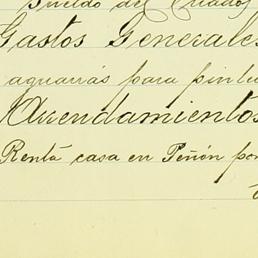 Sueldo del Criado
Gastos Generales
aguarrás para pintu
Arrendamientos
Renta casa en Peñón por